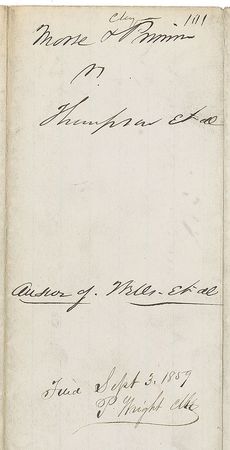 Chy 101
Morse &
v.
Thompson et al
Answer of Wells et al
Filed Sept 3. 1859
P. Wright Clk